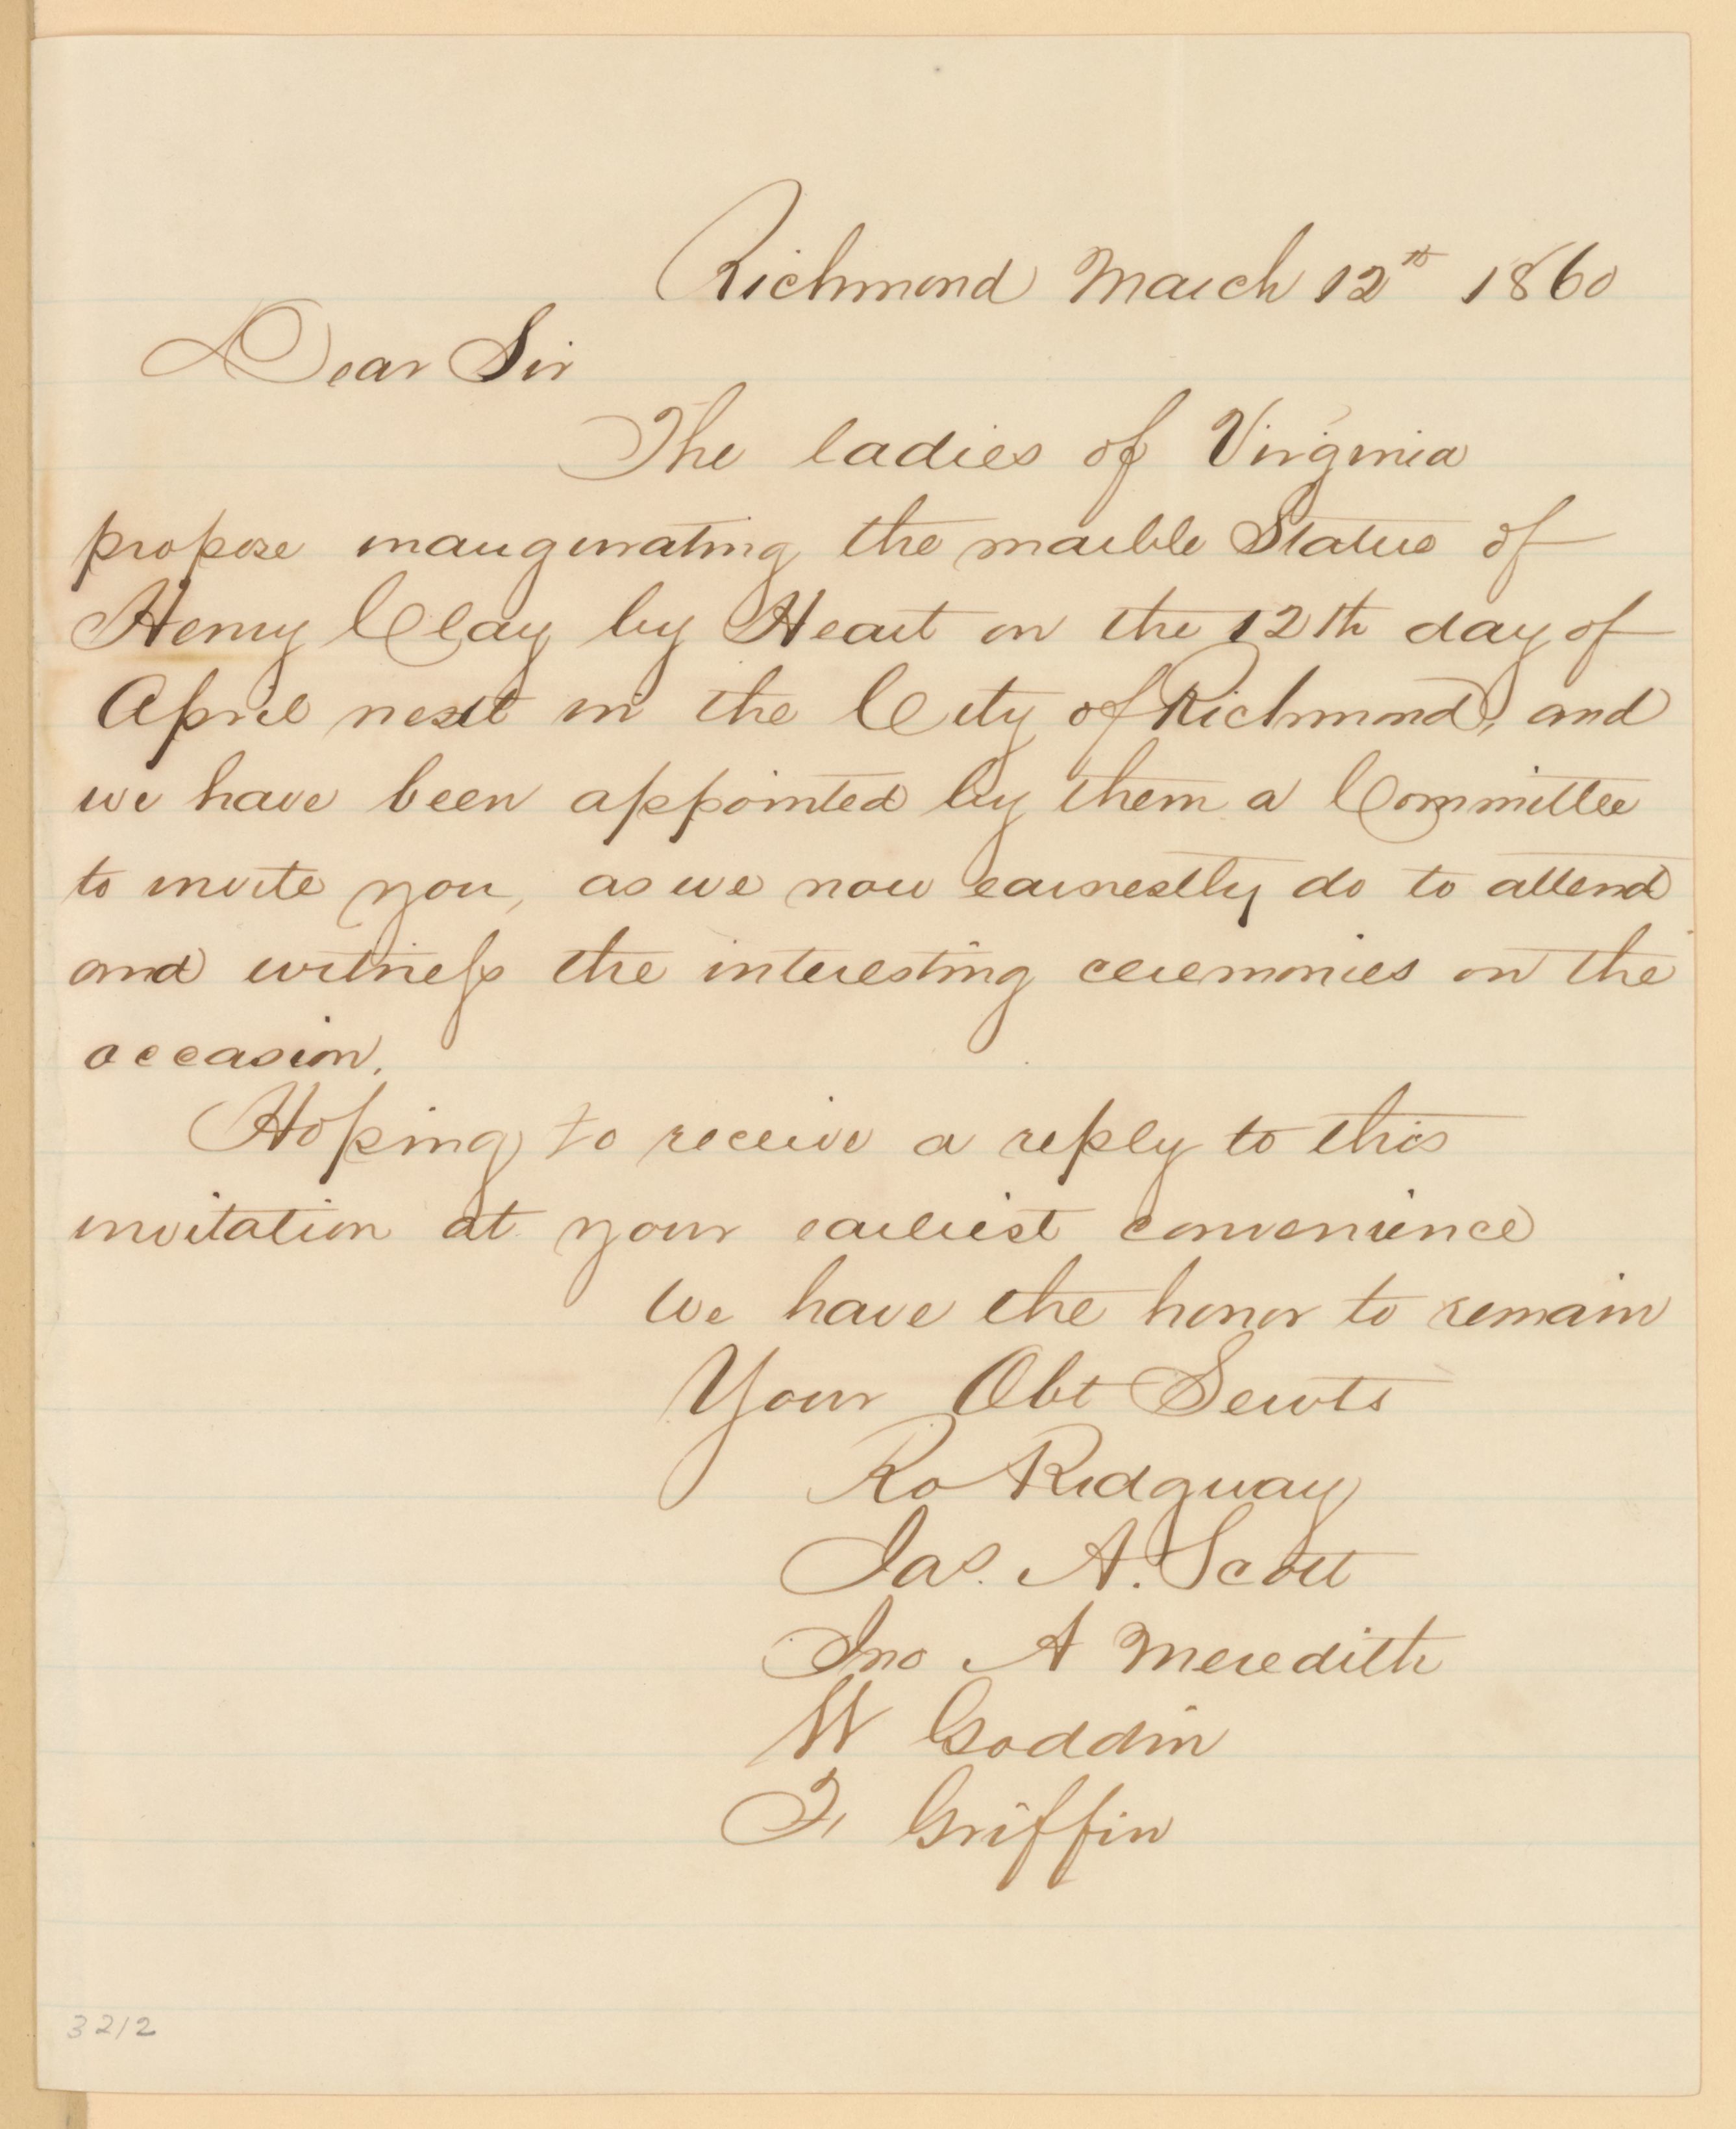 Richmond March 12th 1860
Dear Sir
The ladies of Virginia
propose inaugurating the marble Statue of
Henry Clay by Heart on the 12th day of
April next in the City of Richmond, and
we have been appointed by them a Committee
to invite you, as we now earnestly do to attend
and witness the interesting ceremonies on the
occasion.
Hoping to receive a reply to this
invitation at your earliest convenience
We have the honor to remain
Your Obt Servts
Ro Ridgway
Jas. A. Scott
Jno A Meredith
W Goddin
F, Griffin
3212